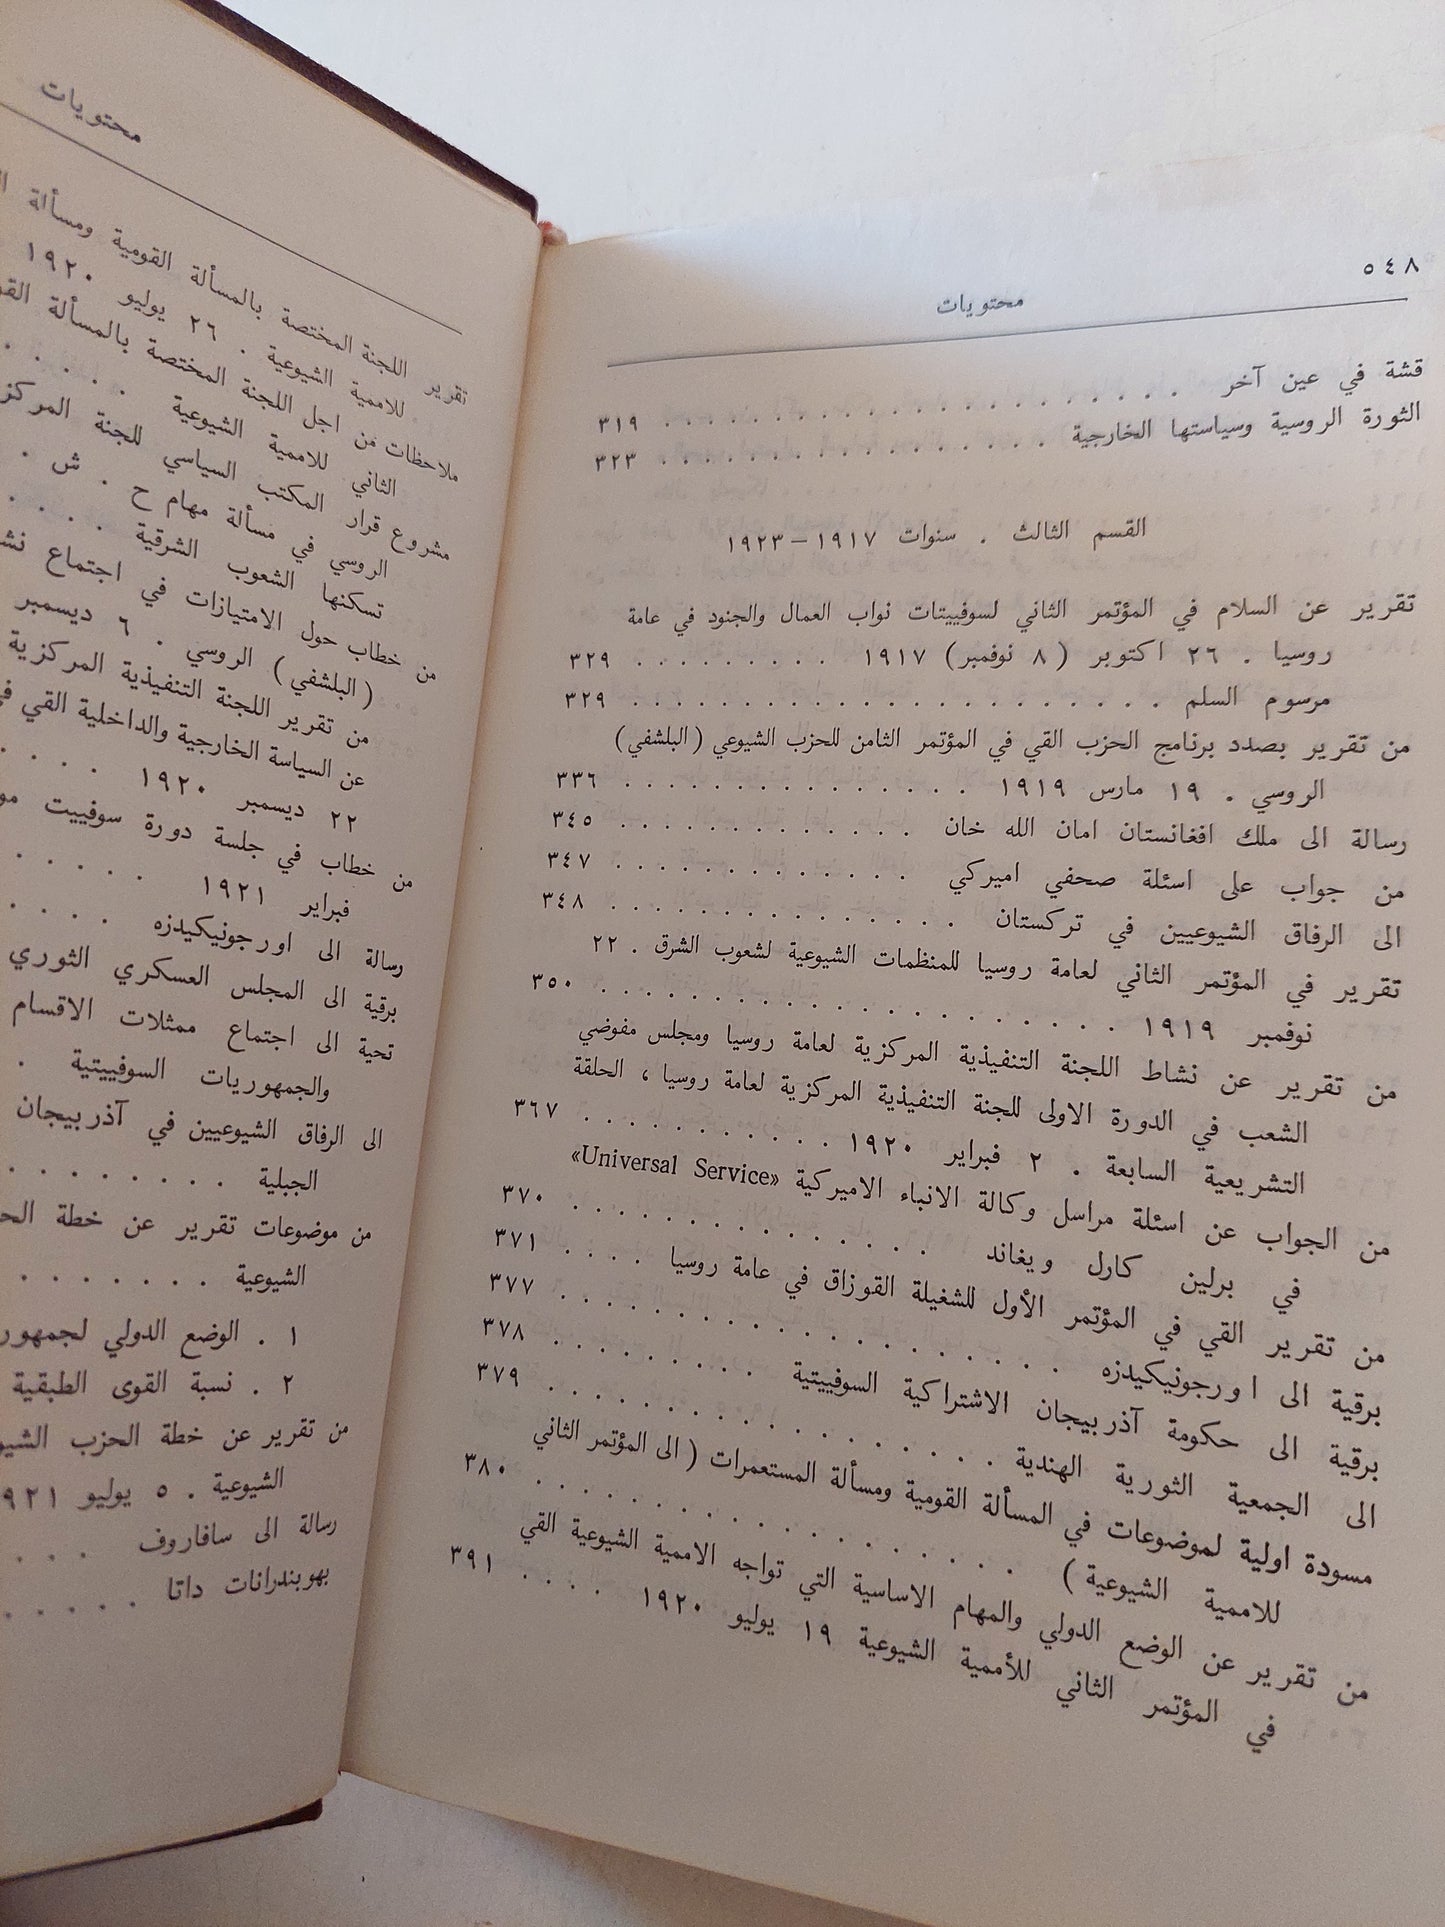 ٥٤٨
محتويات
قشة في عين آخر . . . . . . . . . . . . . . . . . ٣١٩
الثورة الروسية وسياستها الخارجية . . . . . . . . . . . . . . ٣٢٣
القسم الثالث . سنوات ١٩١٧ – ١٩٢٣
تقرير عن السلام في المؤتمر الثاني لسوفييتات نواب العمال والجنود في عامة
روسيا . ٢٦ اكتوبر ( ٨ نوفمبر) ١٩١٧ . . . . . . . . . ٣٢٩
مرسوم السلم . . . . . . . . . . . . . . . . . . . ٣٢٩
من تقرير بصدد برنامج الحزب القي في المؤتمر الثامن للحزب الشيوعي (البلشفي)
الروسي . ١٩ مارس ١٩١٩ . . . . . . . . . . . . . . ٣٣٦
رسالة الى ملك افغانستان امان الله خان . . . . . . . . . . . . . ٣٤٥
من جواب على اسئلة صحفي اميركي . . . . . . . . . . . . . ٣٤٧
الى الرفاق الشيوعيين في تركستان . . . . . . . . . . . . . . ٣٤٨
تقرير في المؤتمر الثاني لعامة روسيا للمنظمات الشيوعية لشعوب الشرق . ٢٢
نوفمبر ١٩١٩ . . . . . . . . . . . . . . . . . . ٣٥٠
من تقرير عن نشاط اللجنة التنفيذية المركزية لعامة روسيا ومجلس مفوضي
الشعب في الدورة الاولى للجنة التنفيذية المركزية لعامة روسيا ، الحلقة
التشريعية السابعة . ٢ فبراير ١٩٢٠ . . . . . . . . . . . ٣٦٧
من الجواب عن اسئلة مراسل وكالة الانباء الاميركية «Universal Service»
في برلين كارل ويغاند . . . . . . . . . . . . . . . ٣٧٠
من تقرير القي في المؤتمر الأول للشغيلة القوزاق في عامة روسيا . . . . ٣٧١
برقية الى اورجونيكيدزه . . . . . . . . . . . . . . . . . ٣٧٧
برقية الى حكومة آذربيجان الاشتراكية السوفييتية . . . . . . . . . ٣٧٨
الى الجمعية الثورية الهندية . . . . . . . . . . . . . . . ٣٧٩
مسودة اولية لموضوعات في المسألة القومية ومسألة المستعمرات ( الى المؤتمر الثاني
للاممية الشيوعية ) . . . . . . . . . . . . . . . . ٣٨٠
من تقرير عن الوضع الدولي والمهام الاساسية التي تواجه الاممية الشيوعية القي
في المؤتمر الثاني للأممية الشيوعية ١٩ يوليو ١٩٢٠ . . . . ٣٩١
محتويات
تقرير اللجنة المختصة بالمسألة القومية ومسألة
للاممية الشيوعية . ٢٦ يوليو ١٩٢٠
ملاحظات من اجل اللجنة المختصة بالمسألة
الثاني للاممية الشيوعية . . . . .
مشروع قرار المكتب السياسي للجنة
الروسي في مسألة مهام ح . ش .
تسكنها الشعوب الشرقية . . . .
من خطاب حول الامتيازات في اجتماع
(البلشفي) الروسي . ٦ ديسمبر
من تقرير اللجنة التنفيذية المركزية
عن السياسة الخارجية والداخلية القي
٢٢ ديسمبر ١٩٢٠ . . . .
من خطاب في جلسة دورة سوفييت
فبراير ١٩٢١ . . . . .
رسالة الى اورجونيكيدزه . . . .
برقية الى المجلس العسكري الثوري
تحية الى اجتماع ممثلات الاقسام
والجمهوريات السوفييتية .
الى الرفاق الشيوعيين في آذربيجان
الجبلية . . . . . .
من موضوعات تقرير عن خطة
الشيوعية . . . . . . .
١ . الوضع الدولي
٢ . نسبة القوى الطبقية
من تقرير عن خطة الحزب
الشيوعية . ٥ يوليو
رسالة الى سافاروف . . .
بهوبندرانات داتا . . . . .